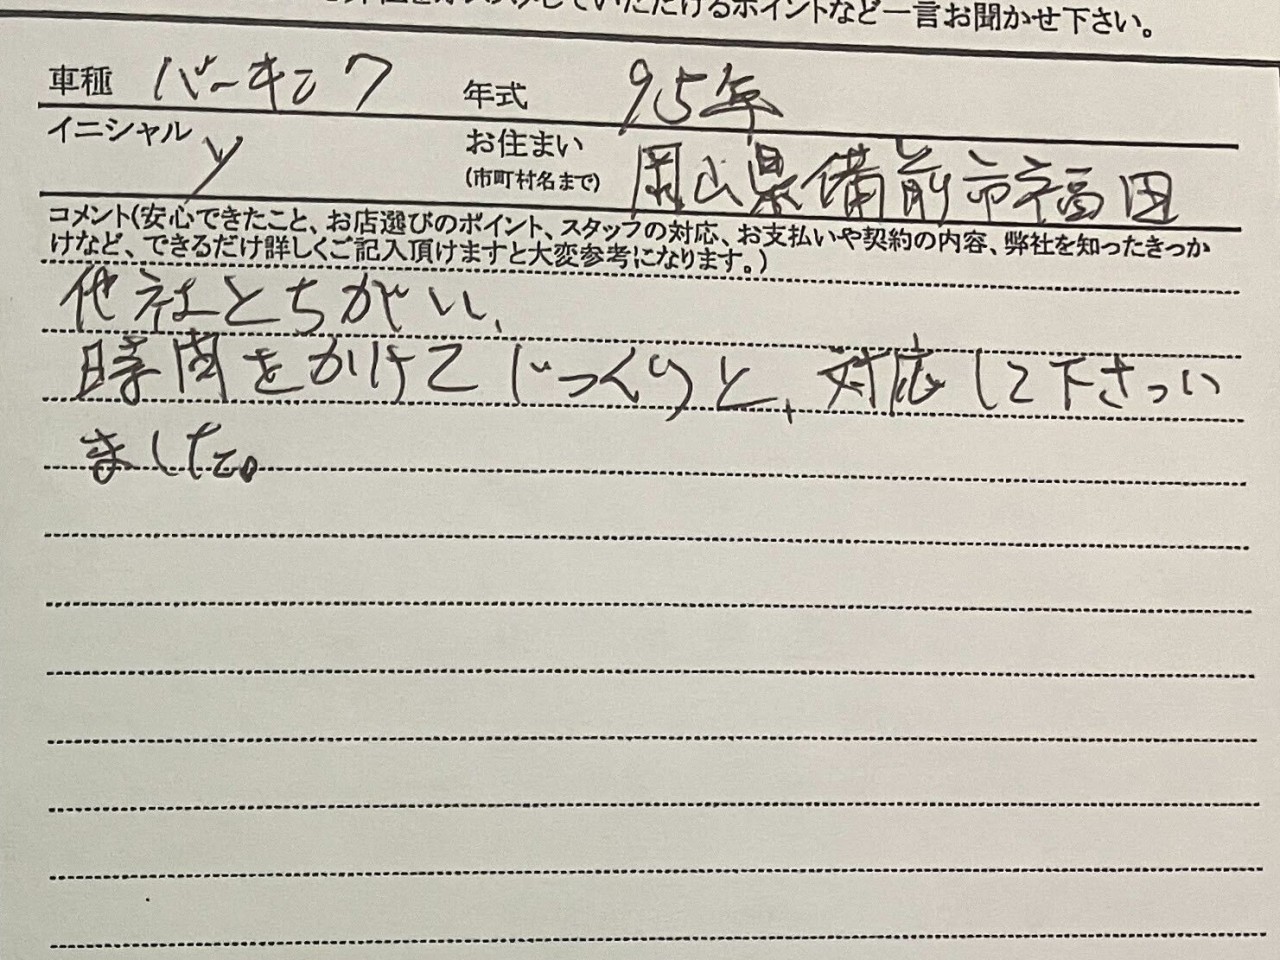 をオススメしていただけるポイントなど一言お聞かせ下さい。
車種 バーキン7 年式 95年
イニシャル Y お住まい(市町村名まで) 岡山県備前市福田
コメント(安心できたこと、お店選びのポイント、スタッフの対応、お支払いや契約の内容、弊社を知ったきっか
けなど、できるだけ詳しくご記入頂けますと大変参考になります。)
他社とちがい、
時間をかけてじっくりと、対応して下さっい
ました。